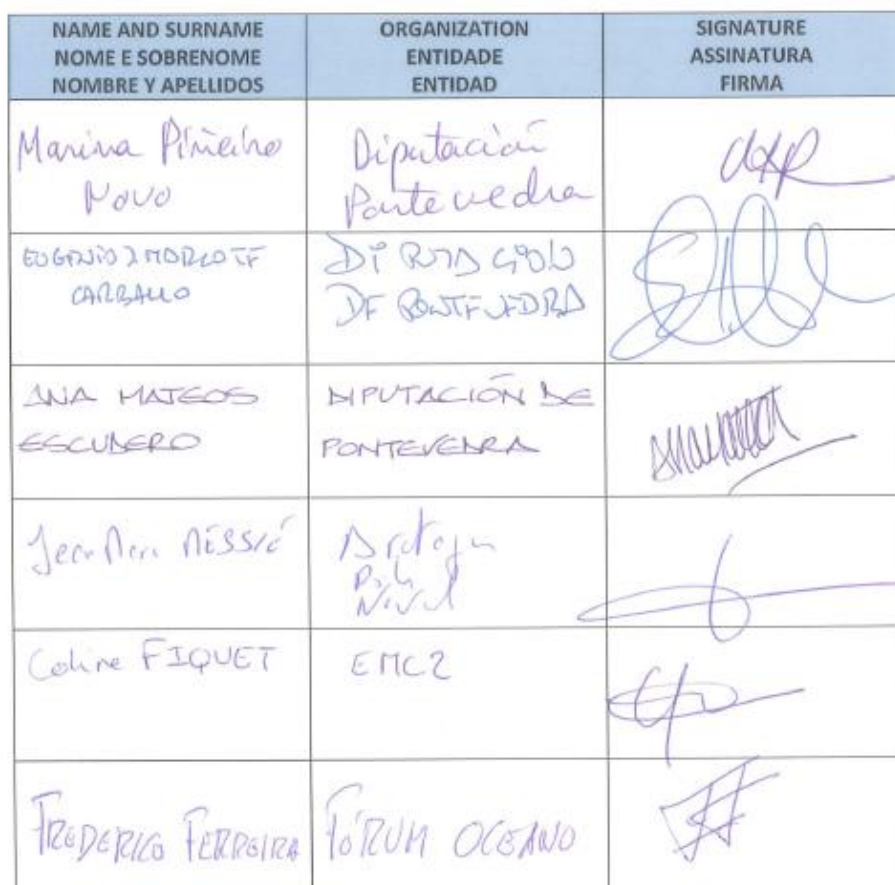 NAME AND SURNAME
NOME E SOBRENOME
NOMBRE Y APELLIDOS
ORGANIZATION
ENTIDADE
ENTIDAD
SIGNATURE
ASSINATURA
FIRMA
Marina Piñeiro
Novo
Diputación
Pontevedra
CARBALLO
DIPUTACION
DE PONTEVEDRA
ANA MATEOS
ESCUDERO
DIPUTACIÓN DE
PONTEVEDRA
Coline FIQUET
EMC2
FREDERICO FERREIRA
FÓRUM OCEANO